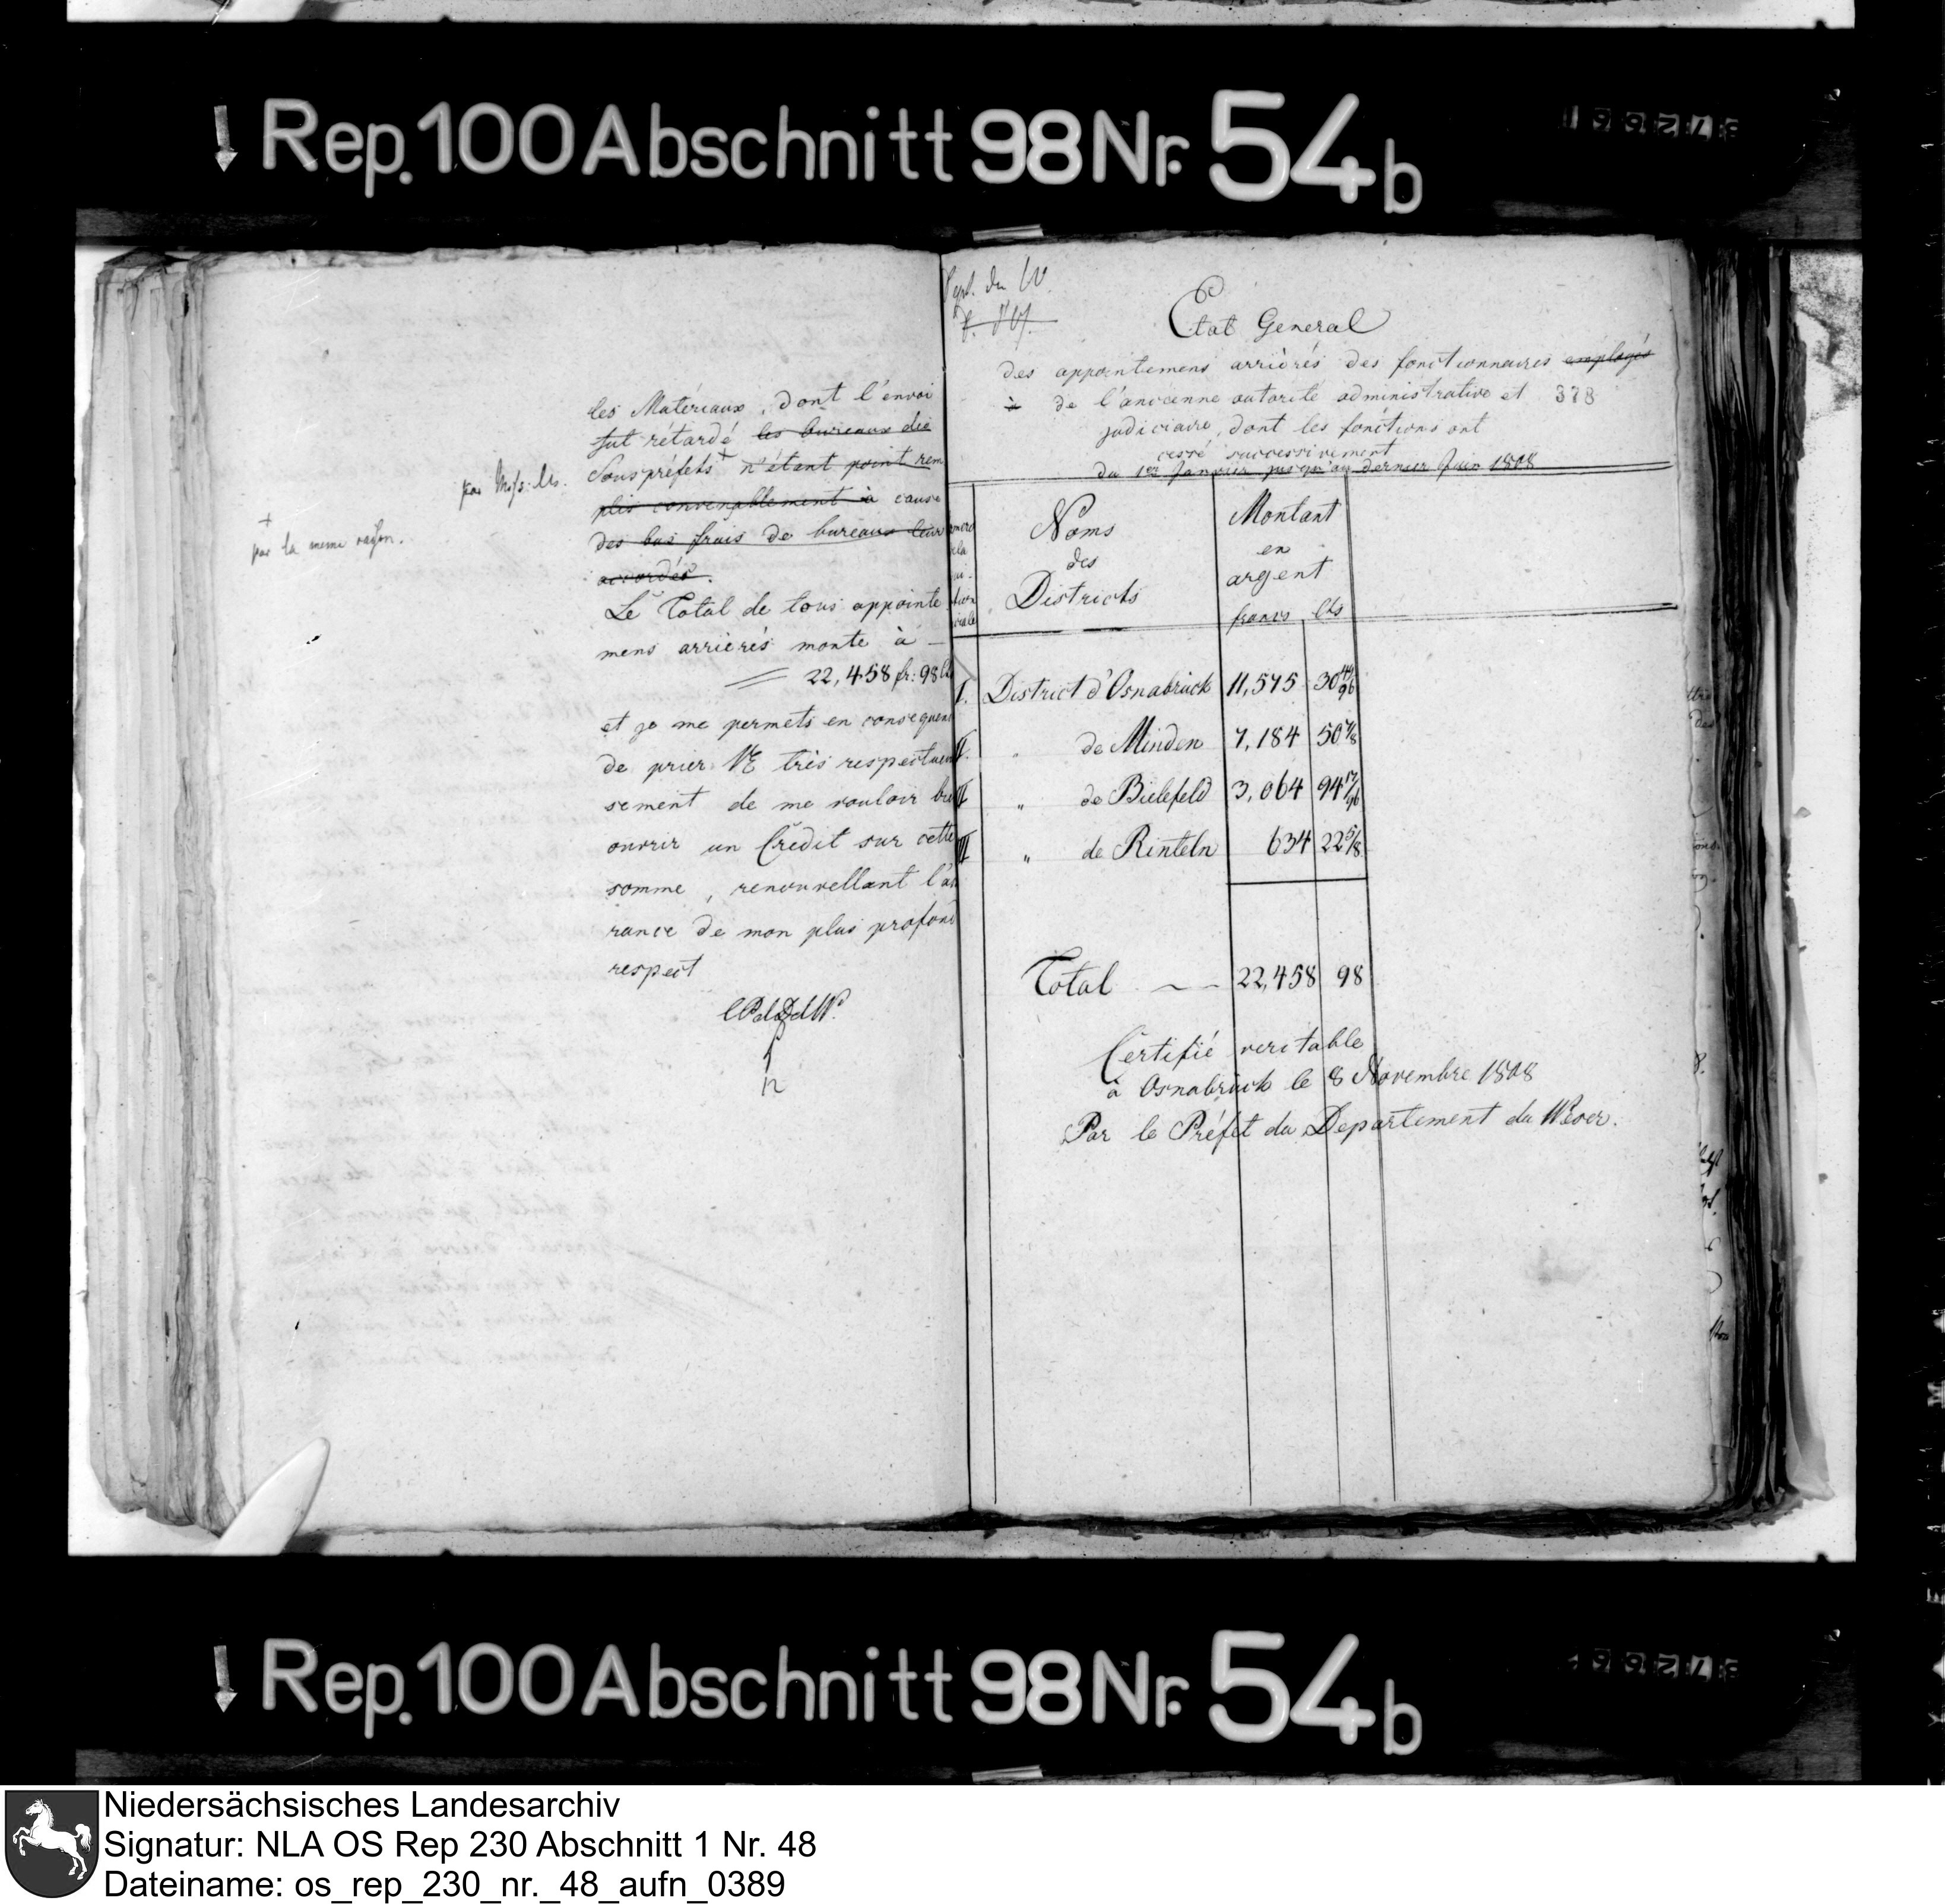 Rep. 100 Abschnitt 98 Nr. 54b
les Matériaux, dont l'envoi
fut rétardé les bureaux des
par Mrs. les Souspréfets + n'étant point rem
plis convenablement à cause
+ par la meme raison.
des bas frais de bureaux leur
accordés.
Le Total de tous appointe
mens arrierés monte à —
22,458 fr: 98 Cts
et je me permets en consequen
de prier VE très respectueu
sement de me vouloir bie
ouvrir un Credit sur cette
somme, renouvellant l'as
rance de mon plus profond
respect
lPdDdW.
Dept. du W.
Etat General
des appointemens arriérés des fonctionnaires employés
à de l'ancienne autorité administrative et 378
judiciaire, dont les fonctions ont
cessé successivement
du 1er Janvier jusqu'au dernier Juin 1808
Noms
des
Districts
Montant
en
argent
francs Cts
I. District d'Osnabrück 11,575 30 44/96
II. " de Minden 7,184 50 7/8
" de Bielefeld 3,064 94 17/96
" de Rinteln 634 22 5/8
Total — — 22,458 98
Certifié veritable
à Osnabrück le 8 Novembre 1808
Par le Préfet du Departement du Weser.
Rep. 100 Abschnitt 98 Nr. 54b
Niedersächsisches Landesarchiv
Signatur: NLA OS Rep 230 Abschnitt 1 Nr. 48
Dateiname: os_rep_230_nr._48_aufn_0389